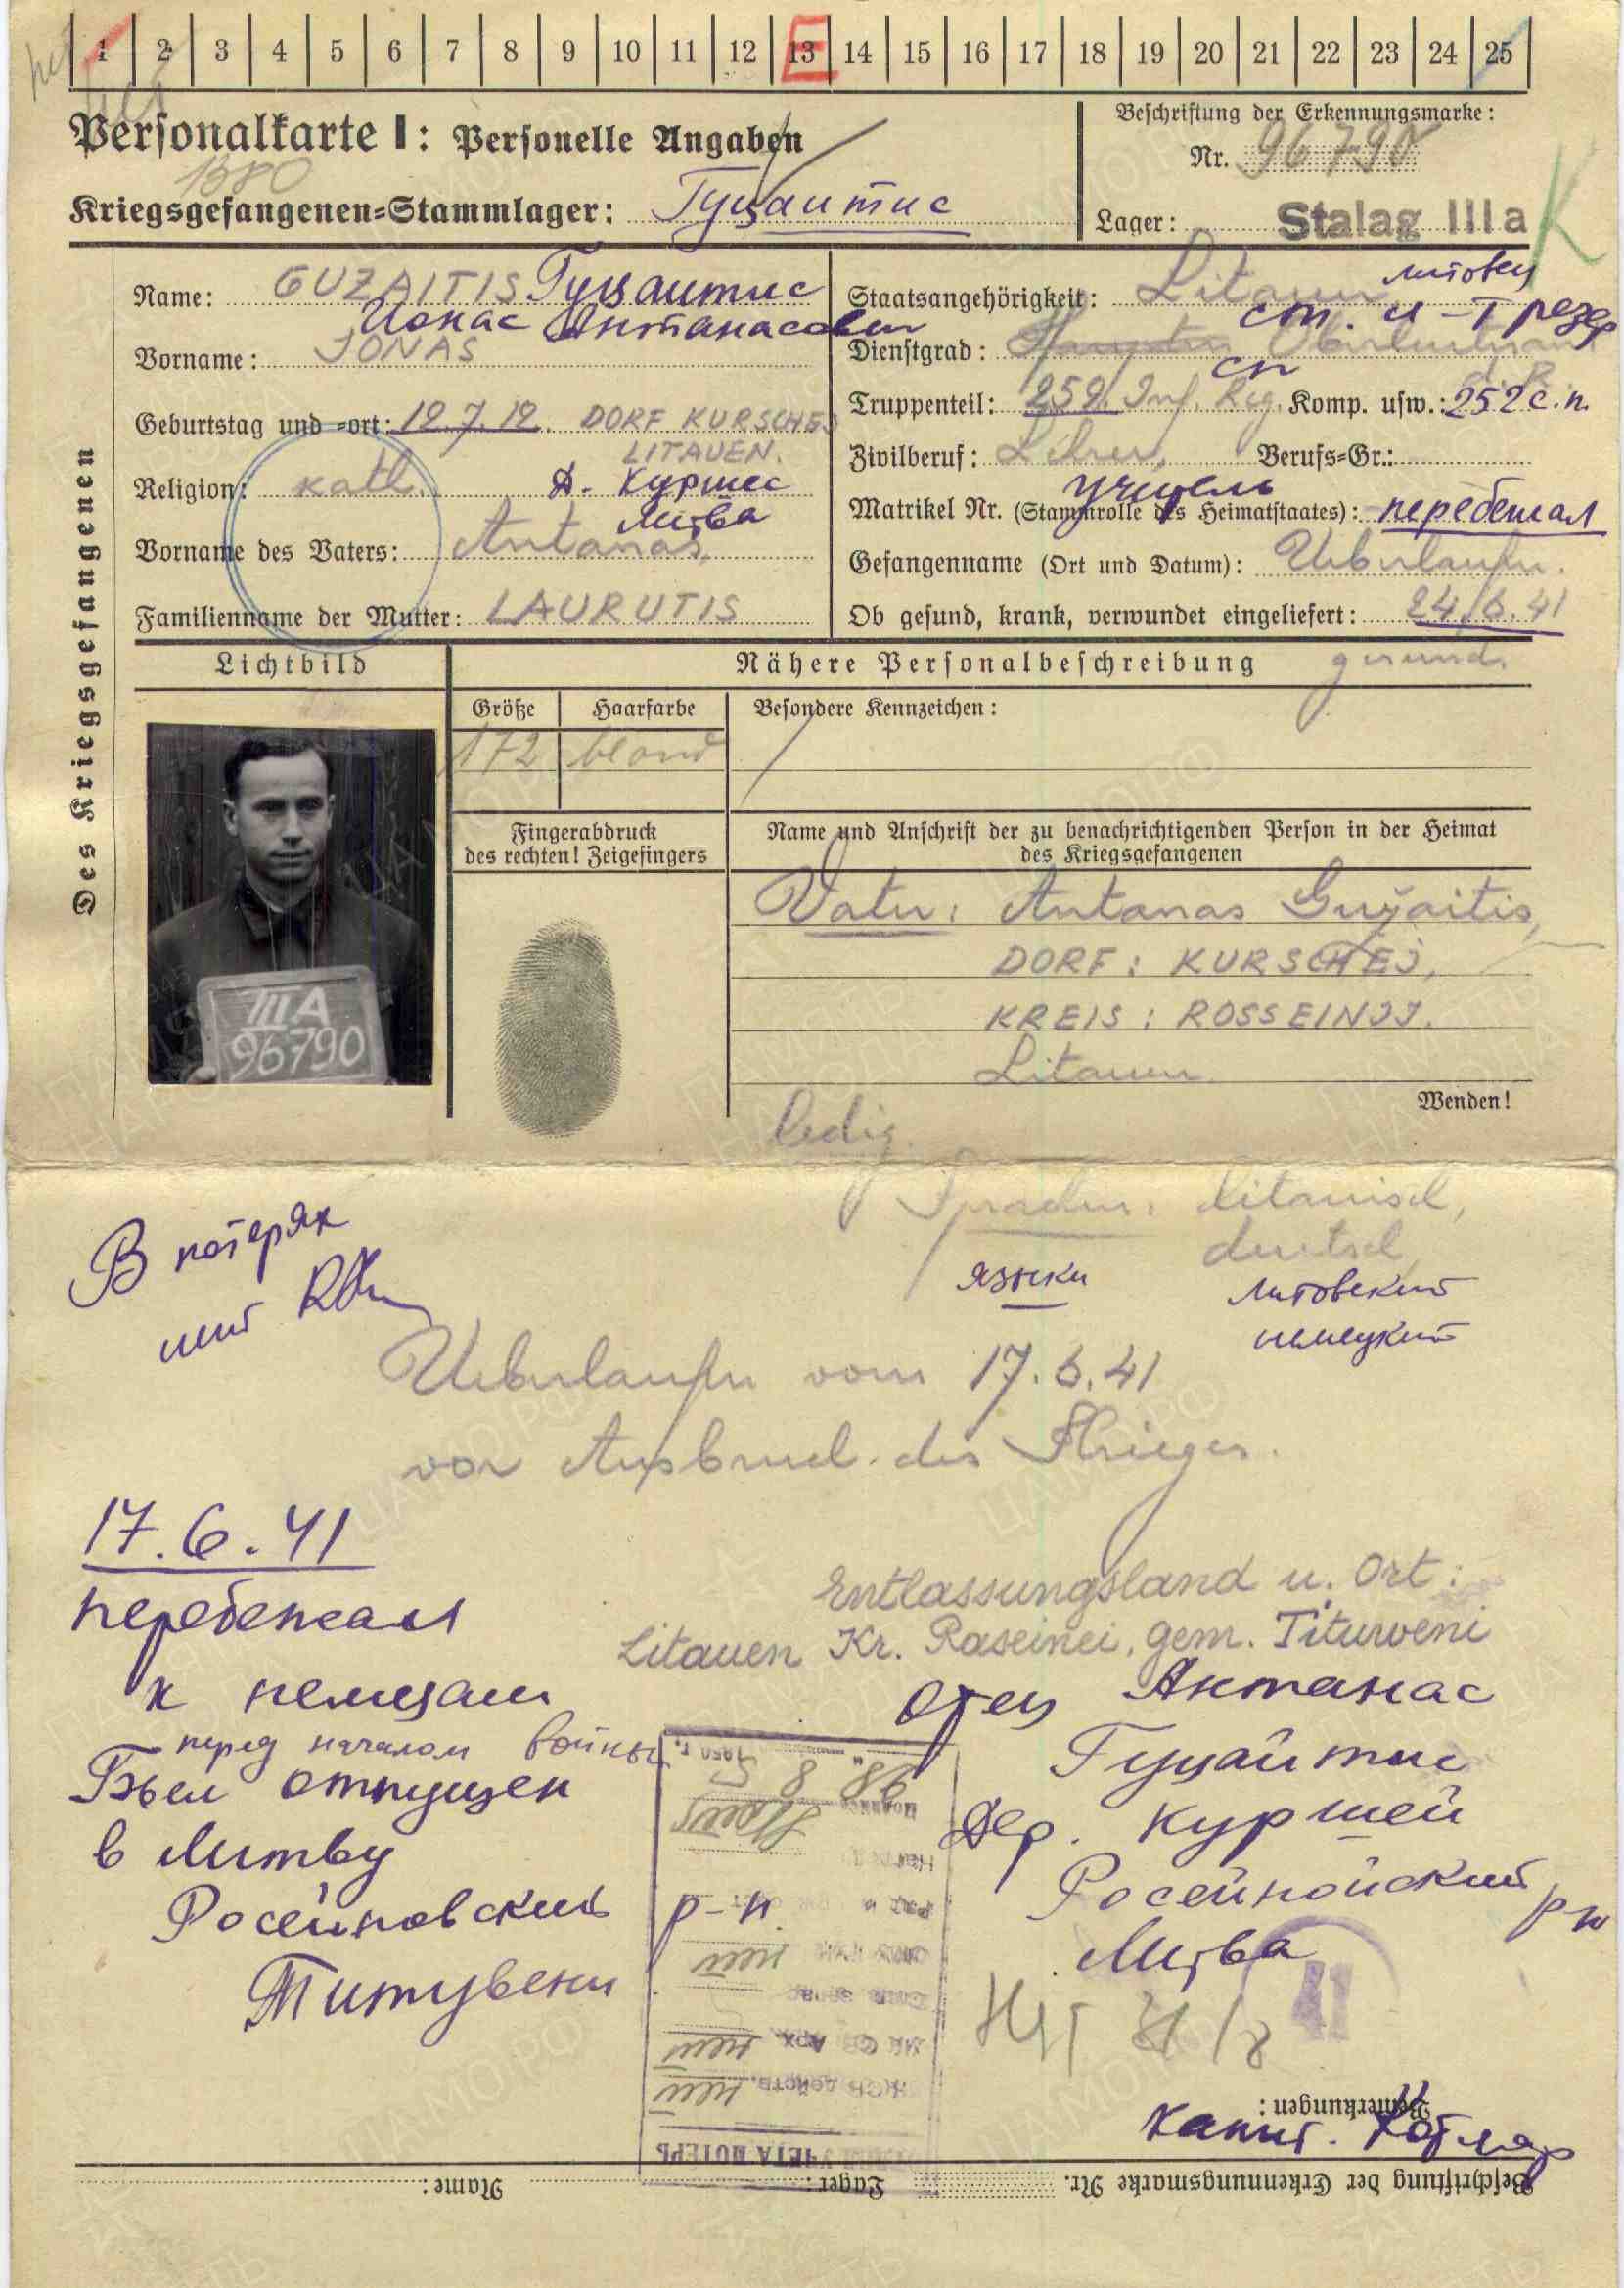 1 2 3 4 5 6 7 8 9 10 11 12 13 14 15 16 17 18 19 20 21 22 23 24 25
нет
Personalkarte I: Personelle Angaben
1380
Kriegsgefangenen=Stammlager: Гуцаитис
Beschriftung der Erkennungsmarke:
Nr. 96790
Lager: Stalag IIIa
K
Des Kriegsgefangenen
Name: GUZAITIS Гуцаитис
Ионас Антанасович
Vorname: JONAS
Geburtstag und =ort: 12.7.12. DORF KURSCHES
LITAUEN.
Religion: kath. Д. Куршес
Литва
Vorname des Vaters: Antanas,
Familienname der Mutter: LAURUTIS
Staatsangehörigkeit: Litauen литовец
ст. л-т резер
Dienstgrad: Oberleutnant
d. R.
сп
Truppenteil: 252. Inf. Reg. Komp. usw.: 252 с.п.
Zivilberuf: Lehrer, Berufs=Gr.:
учитель
Matrikel Nr. (Stammrolle des Heimatstaates): перебежал
Gefangenname (Ort und Datum): Ueberläufer.
Ob gesund, krank, verwundet eingeliefert: 24.6.41
gesund.
Lichtbild
Nähere Personalbeschreibung
Größe Haarfarbe Besondere Kennzeichen:
172 blond
Fingerabdruck
des rechten! Zeigefingers
Name und Anschrift der zu benachrichtigenden Person in der Heimat
des Kriegsgefangenen
Vater: Antanas Gužaitis,
DORF: KURSCHEJ,
KREIS: ROSSEINJJ.
Litauen
Wenden!
III A
96790
ledig.
Sprachen: litauisch,
deutsch
языки литовский
немецкий
В потерях
нет
Ueberläufer vom 17.6.41
vor Ausbruch des Krieges.
17.6.41
перебежал
к немцам
перед началом войны
Был отпущен
в Литву
Росейновский р-н
Титувени
Entlassungsland u. Ort:
Litauen Kr. Raseinei, gem. Titurweni
Отец Антанас
Гуцайтис
Дер. Куршей
Росейнойский р-н
Литва
41
Капит. Котляр
1950 г.
28 8
нет
нет
нет
УЧЕТА ПОТЕРЬ
Bemerkungen:
Beschriftung der Erkennungsmarke Nr. Lager: Name: